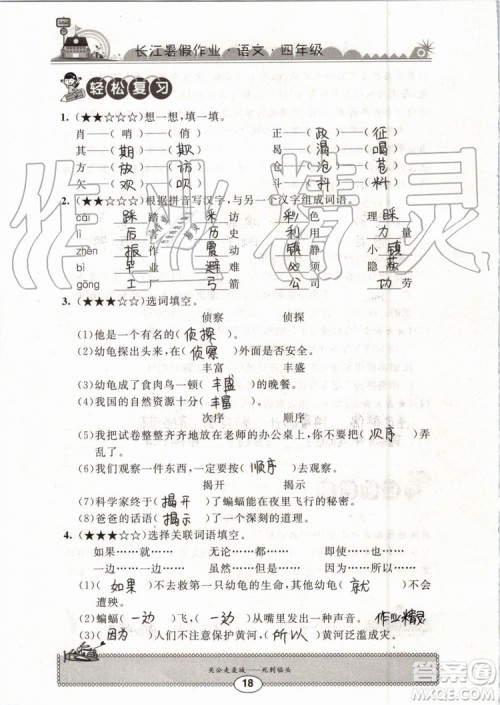 长江暑假作业·语文·四年级
轻松复习
1.(★★☆☆☆)想一想,填一填。
肖—(哨)(俏) 正—(政)(征)
其—(期)(欺) 曷—(渴)(喝)
方—(放)(访) 仓—(沧)(苍)
欠—(欢)(吹) 斗—(抖)(料)
2.(★★☆☆☆)根据拼音写汉字,与另一个汉字组成词语。
cǎi 踩踏 采访 彩色 理睬
lì 历史 利用 力量
zhèn 振作 震动 镇 小镇
bì 毕 避难 隐蔽
gōng 工 弓箭 公司 功劳
3.(★★★☆☆)选词填空。
侦察 侦探
(1)他是一个有名的(侦探)。
(2)幼龟探出头来,在(侦察)外面是否安全。
丰富 丰盛
(3)幼龟成了食肉鸟一顿(丰盛)的晚餐。
(4)我国的自然资源十分(丰富)。
次序 顺序
(5)我把试卷整整齐齐地放在老师的办公桌上,你不要把(次序)弄
乱了。
(6)我们观察一件东西,一定要按(顺序)。
揭开 揭示
(7)科学家终于(揭开)了蝙蝠能在夜里飞行的秘密。
(8)爸爸的话语(揭示)了一个深刻的道理。
4.(★★★☆☆)选择关联词语填空。
如果……就…… 无论……都…… 即使……也……
一边……一边…… 虽然……但是…… 因为……所以……
(1)(如果)不去救第一只幼龟,更多的幼龟(就)不会
遭殃。
(2)蝙蝠(一边)飞,(一边)从嘴里发出一种声音。 作业精灵
(3)(因为)人们不注意保护黄河,(所以)黄河泛滥成灾。
关公走麦城——死到临头
18
作业精灵